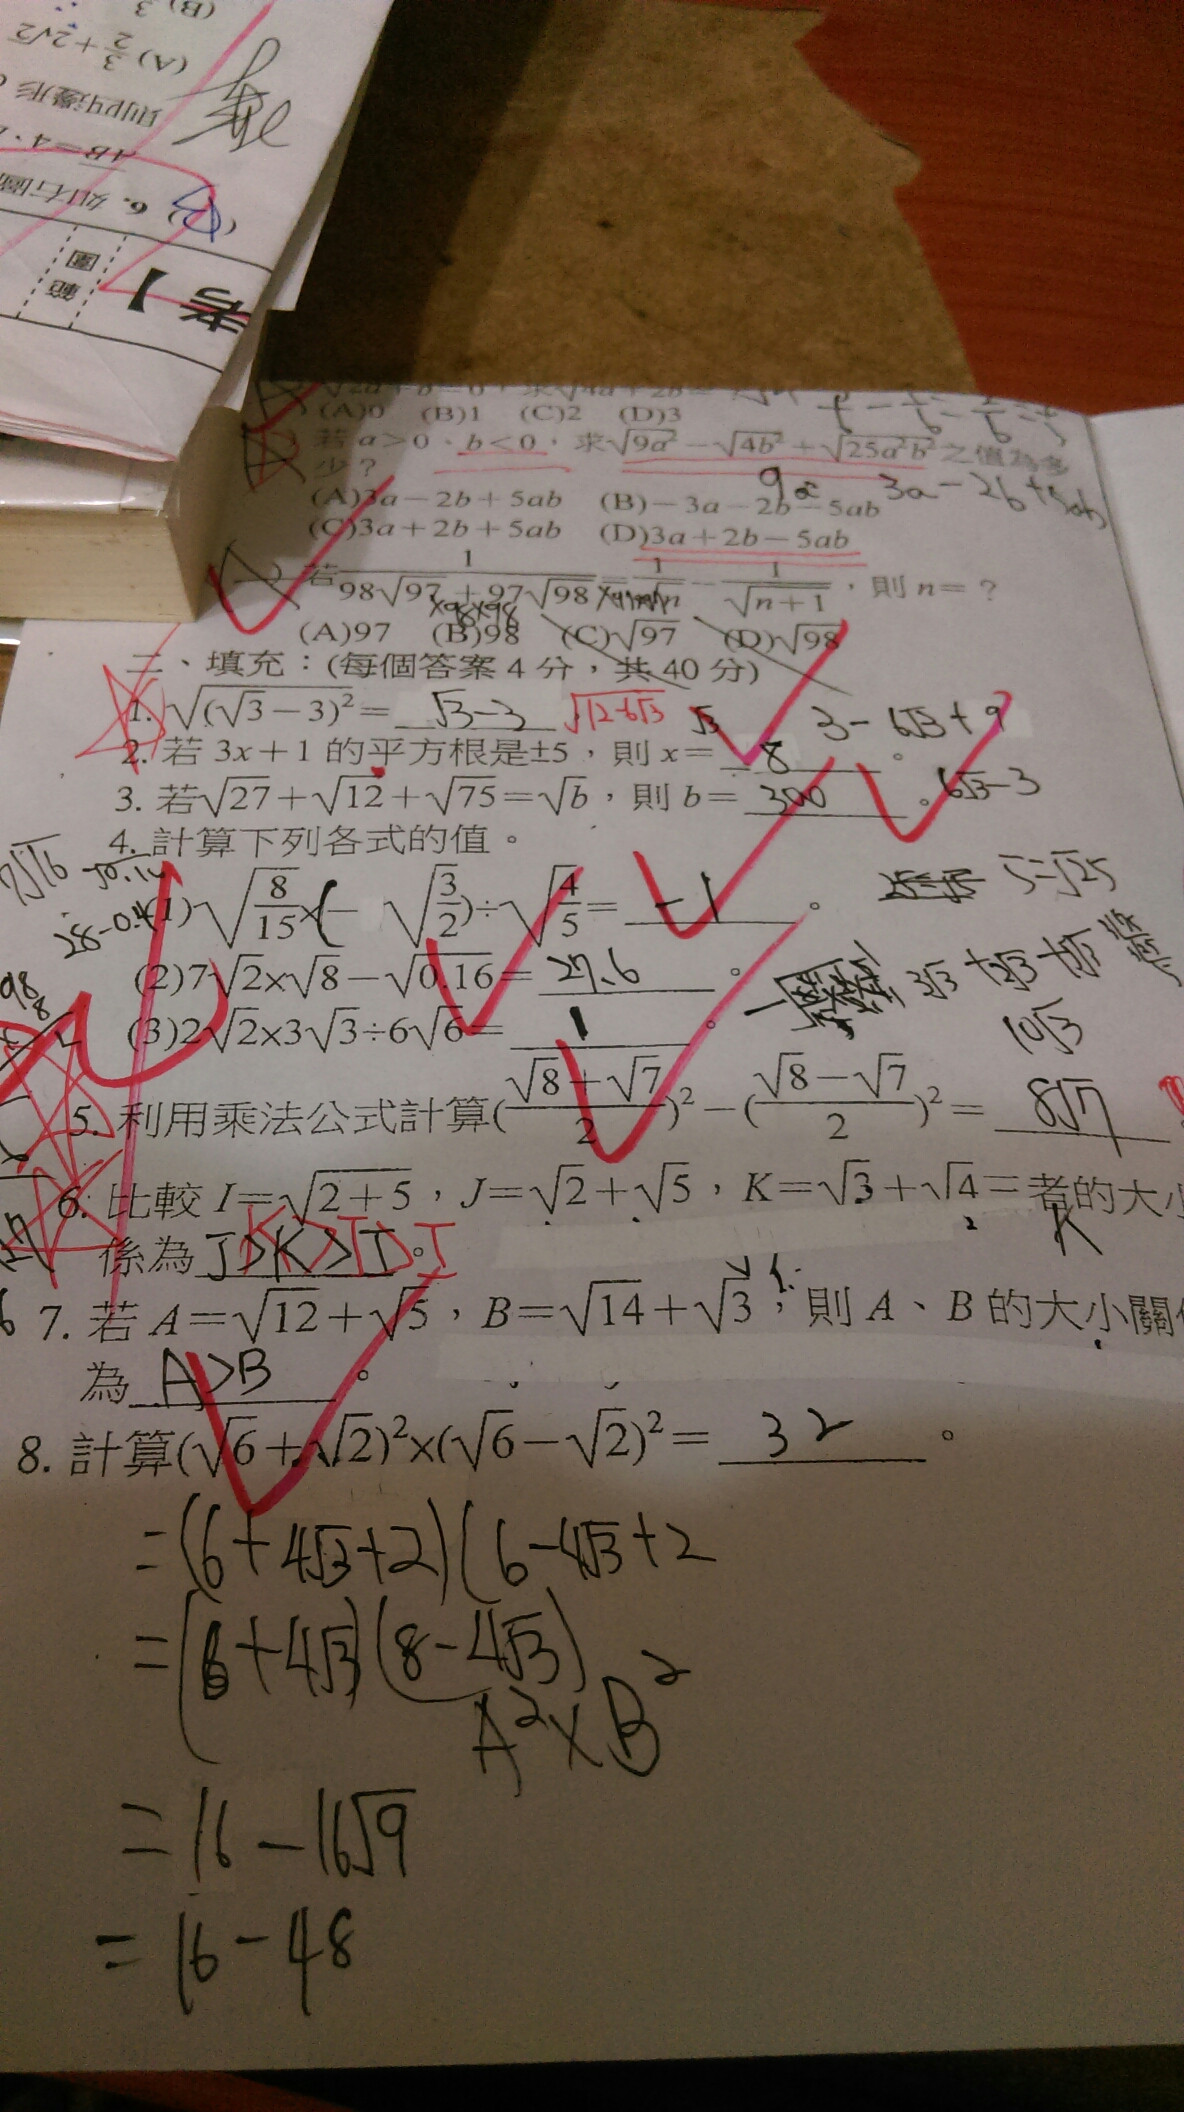 (B) 3
(A) 3/2+2√2
則四邊形
AB=4、
(B) 6. 如右圖
範圍
考】
(A)0 (B)1 (C)2 (D)3
若 a>0、b<0,求√9a²−√4b²+√25a²b² 之值為多
少?
9a 3a−2b+5ab
(A)3a−2b+5ab (B)−3a−2b−5ab
(C)3a+2b+5ab (D)3a+2b−5ab
) 若 1/(98√97+97√98)=1/√n−1/√(n+1),則 n=?
(A)97 (B)98 (C)√97 (D)√98
二、填充:(每個答案 4 分,共 40 分)
1. √((√3−3)²)= √3−3 √12−6√3 √3 3−6√3+9
2. 若 3x+1 的平方根是±5,則 x= 8 。
6√3−3
3. 若√27+√12+√75=√b,則 b= 300 。
4. 計算下列各式的值。
5=√25
(1)√(8/15)×(− √(3/2))÷√(4/5)= −1 。
28−0.4
(2)7√2×√8−√0.16= 27.6 。
3√3+2√3+5√3
(3)2√2×3√3÷6√6= 1 。
10√3
5. 利用乘法公式計算((√8+√7)/2)²−((√8−√7)/2)²= 8√7
6. 比較 I=√(2+5),J=√2+√5,K=√3+√4 三者的大小
K
係為 J>K>I 。
K>J>I
7. 若 A=√12+√5,B=√14+√3,則 A、B 的大小關係
為 A>B 。
8. 計算(√6+√2)²×(√6−√2)²= 32 。
=(6+4√3+2)(6−4√3+2
=(8+4√3)(8−4√3)
A²×B²
=16−16√9
=16−48